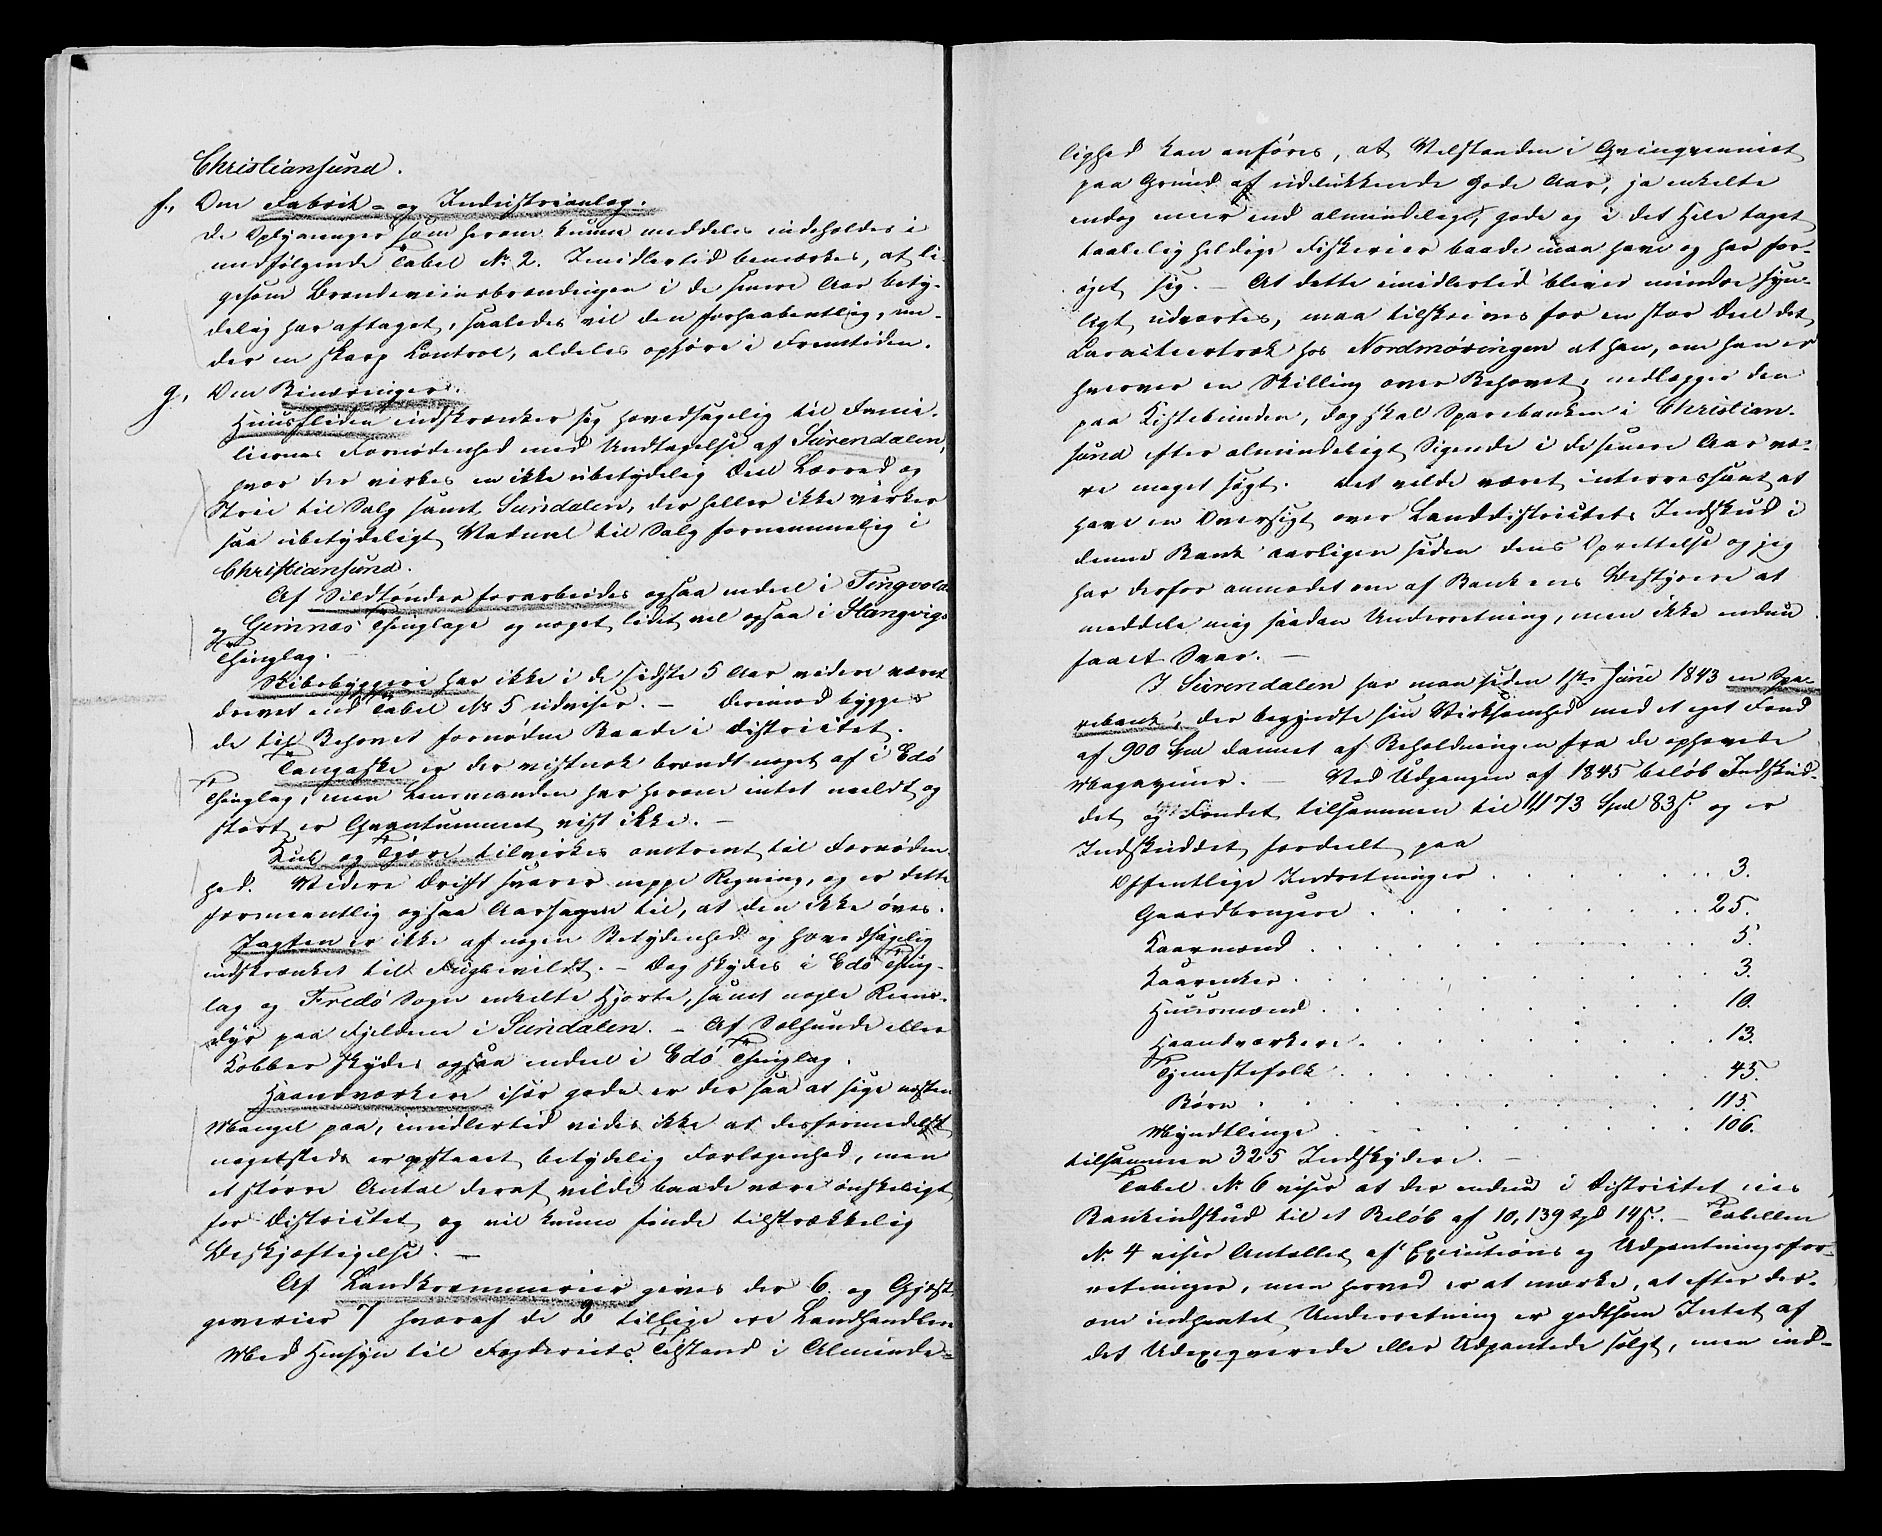 Christiansund.
f, Om Fabrik- og Industrianlæg.
De Oplysninger som herom kunne meddeles indeholdes i
medfølgende Tabel No 2. Imidlertid bemærkes, at li-
gesom Brændeviinsbrændingen i de senere Aar bety-
delig har aftaget, saaledes vil den forhaabentlig, un-
der en skarp Control, aldeles ophøre i Fremtiden.
g, Om Binæringer.
Huusfliden indskrænker sig hovedsagelig til Fami-
liernes Fornødenhed med Undtagelse af Surendalen,
hvor der virkes en ikke ubetydelig Deel Lærred og
Strie til Salg samt Sundalen, der heller ikke virker
saa ubetydeligt Vadmel til Salg fornemmelig i
Christiansund.
Af Sildtønder forarbeides ogsaa endeel i Tingvold
og Gimnæs Thinglage og noget lidet vel ogsaa i Stangvigs
Thinglag.
Skibsbyggeri har ikke i de sidste 5 Aar videre været
drevet end Tabel No 5 udviser. — Derimod bygges
de til Behovet fornødne Baade i Districtet.
Tangaske er der vistnok brændt noget af i Edø
Thinglag, men Lensmanden har herom intet meldt og
stort er Qvantummet vist ikke. —
Kul og Tjære tilvirkes omtrent til Fornøden-
hed. Videre Drift svarer neppe Regning, og er dette
formeentlig ogsaa Aarsagen til, at den ikke øves.
Jagten er ikke af nogen Betydenhed og hovedsagelig
indskrænket til Fuglevildt. — Dog skydes i Edø Thing-
lag og Fredø Sogn enkelte Hjorte, samt nogle Reens-
dyr paa Fjeldene i Sundalen. — Af Sælhunde eller
Kobber skydes ogsaa endeel i Edø Thinglag.
Haandværkere især gode er der saa at sige næsten
Mangel paa, imidlertid vides ikke at desformedelst
nogetsteds er opstaaet betydelig Forlegenhed, men
et større Antal deraf vilde baade være ønskeligt
for Districtet og vil kunne finde tilstrækkelig
Beskjæftigelse. —
Af Landkrammerier gives der 6. og Gjæst-
geverier 7 hvoraf de 2 tillige ere Landhandlere
Med Hensyn til Fogderiets Tilstand i Alminde-
lighed kan anføres, at Velstanden i Qvinqvenniet
paa Grund af udelukkende gode Aar, ja enkelte
endog meer end almindeligt, gode og i det Hele taget
taalelig heldige Fiskerier baade maa have og har for-
øget sig. — At dette imidlertid bliver mindre syn-
ligt udvortes, maa tilskrives for en stor Deel det
Caracteertræk hos Nordmøringen at han, om han er
hverver en Skilling over Behovet, nedlægger den
paa Kistebunden, dog skal Sparebanken i Christian-
sund efter almindeligt Sigende i de senere Aar væ-
re meget søgt. Det vilde været interressant at
have en Oversigt over Landdistrictets Indskud i
denne Bank aarligen siden dens Oprettelse og jeg
har derfor anmodet om af Bankens Bestyrere at
meddele mig saadan Underretning, men ikke endnu
faaet Svar. —
I Surendalen har man siden 1ste Junie 1843 en Spa-
rebank, der begyndte sin Virksomhed med et eget Fond
af 900 Spd dannet af Beholdningen fra de ophævede
Magaziner. — Ved Udgangen af 1845 beløb Indskud-
det og Fondet tilsammen til 4473 Spd 83 s. og er
Indskuddet fordeelt paa
Offentlige Indretninger . . . . . . . 3.
Gaardbrugere . . . . . . . 25.
Kaarmænd . . . . . . . 5.
Kaarenker . . . . . . . 3.
Huusmænd . . . . . . . 10.
Haandværkere . . . . . . . 13.
Tjenestefolk . . . . . . . 45.
Børn . . . . . . . 115.
Myndtlinge . . . . . . . 106.
tilsammen 325 Indskydere. —
Tabel No 6 viser at der endnu i Districtet eies
Bankindskud til et Beløb af 10,139 Spd 14 s. — Tabellen
No 4 viser Antallet af Executions og Udpantningsfor-
retninger, men herved er at mærke, at efter der-
om indhentet Underretning er godtsom Intet af
det Udexeqverede eller Udpantede solgt, men ind-